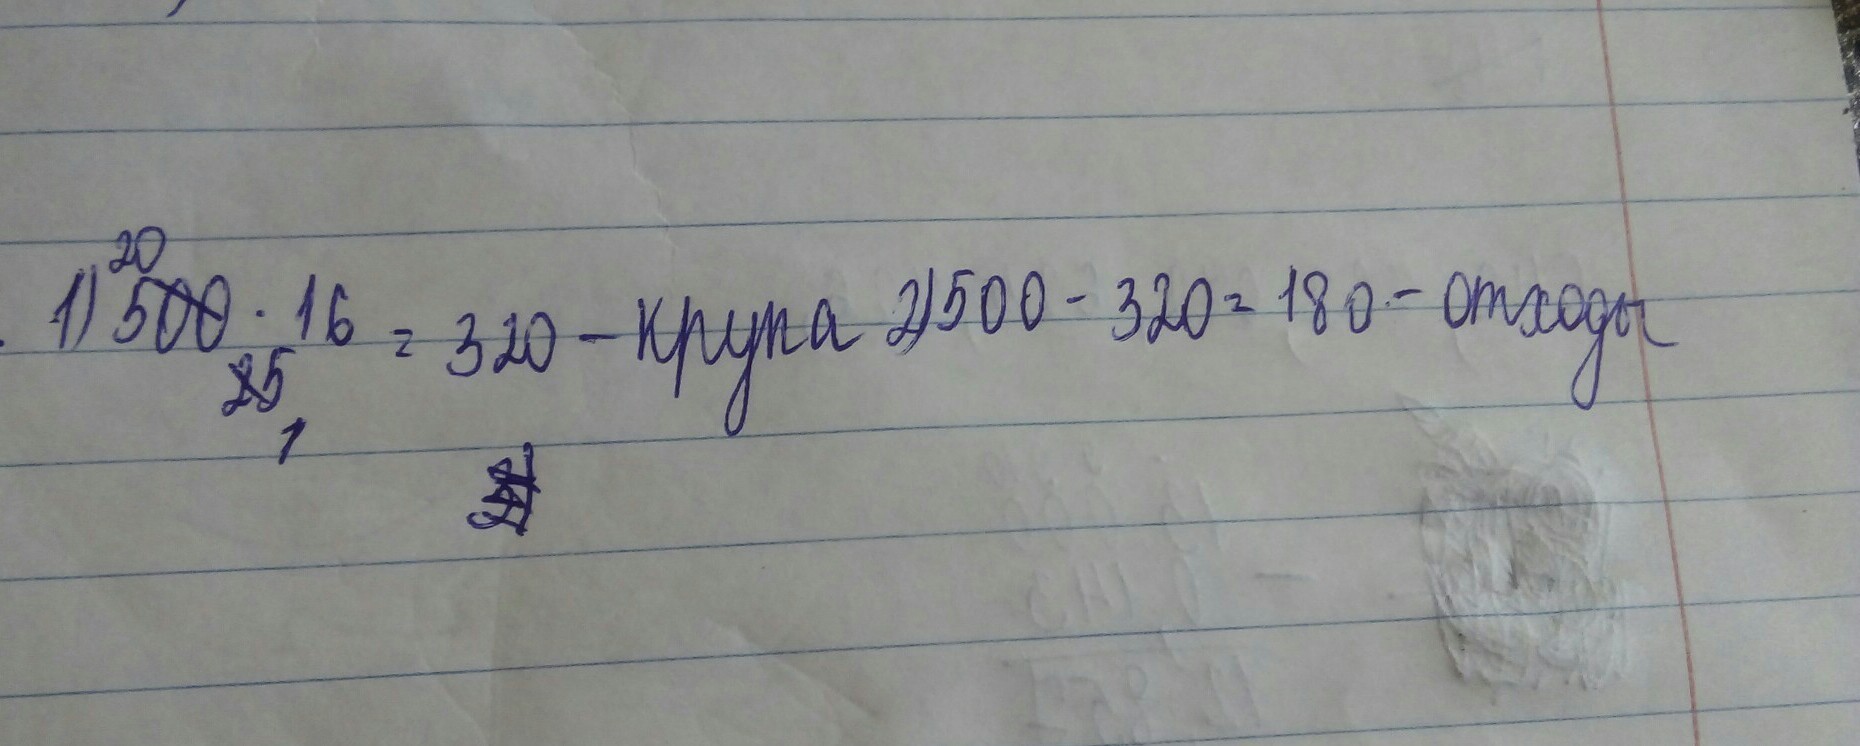 20
1) 500 · 16 = 320 - крупа 2) 500 - 320 = 180 - отходы
25
1